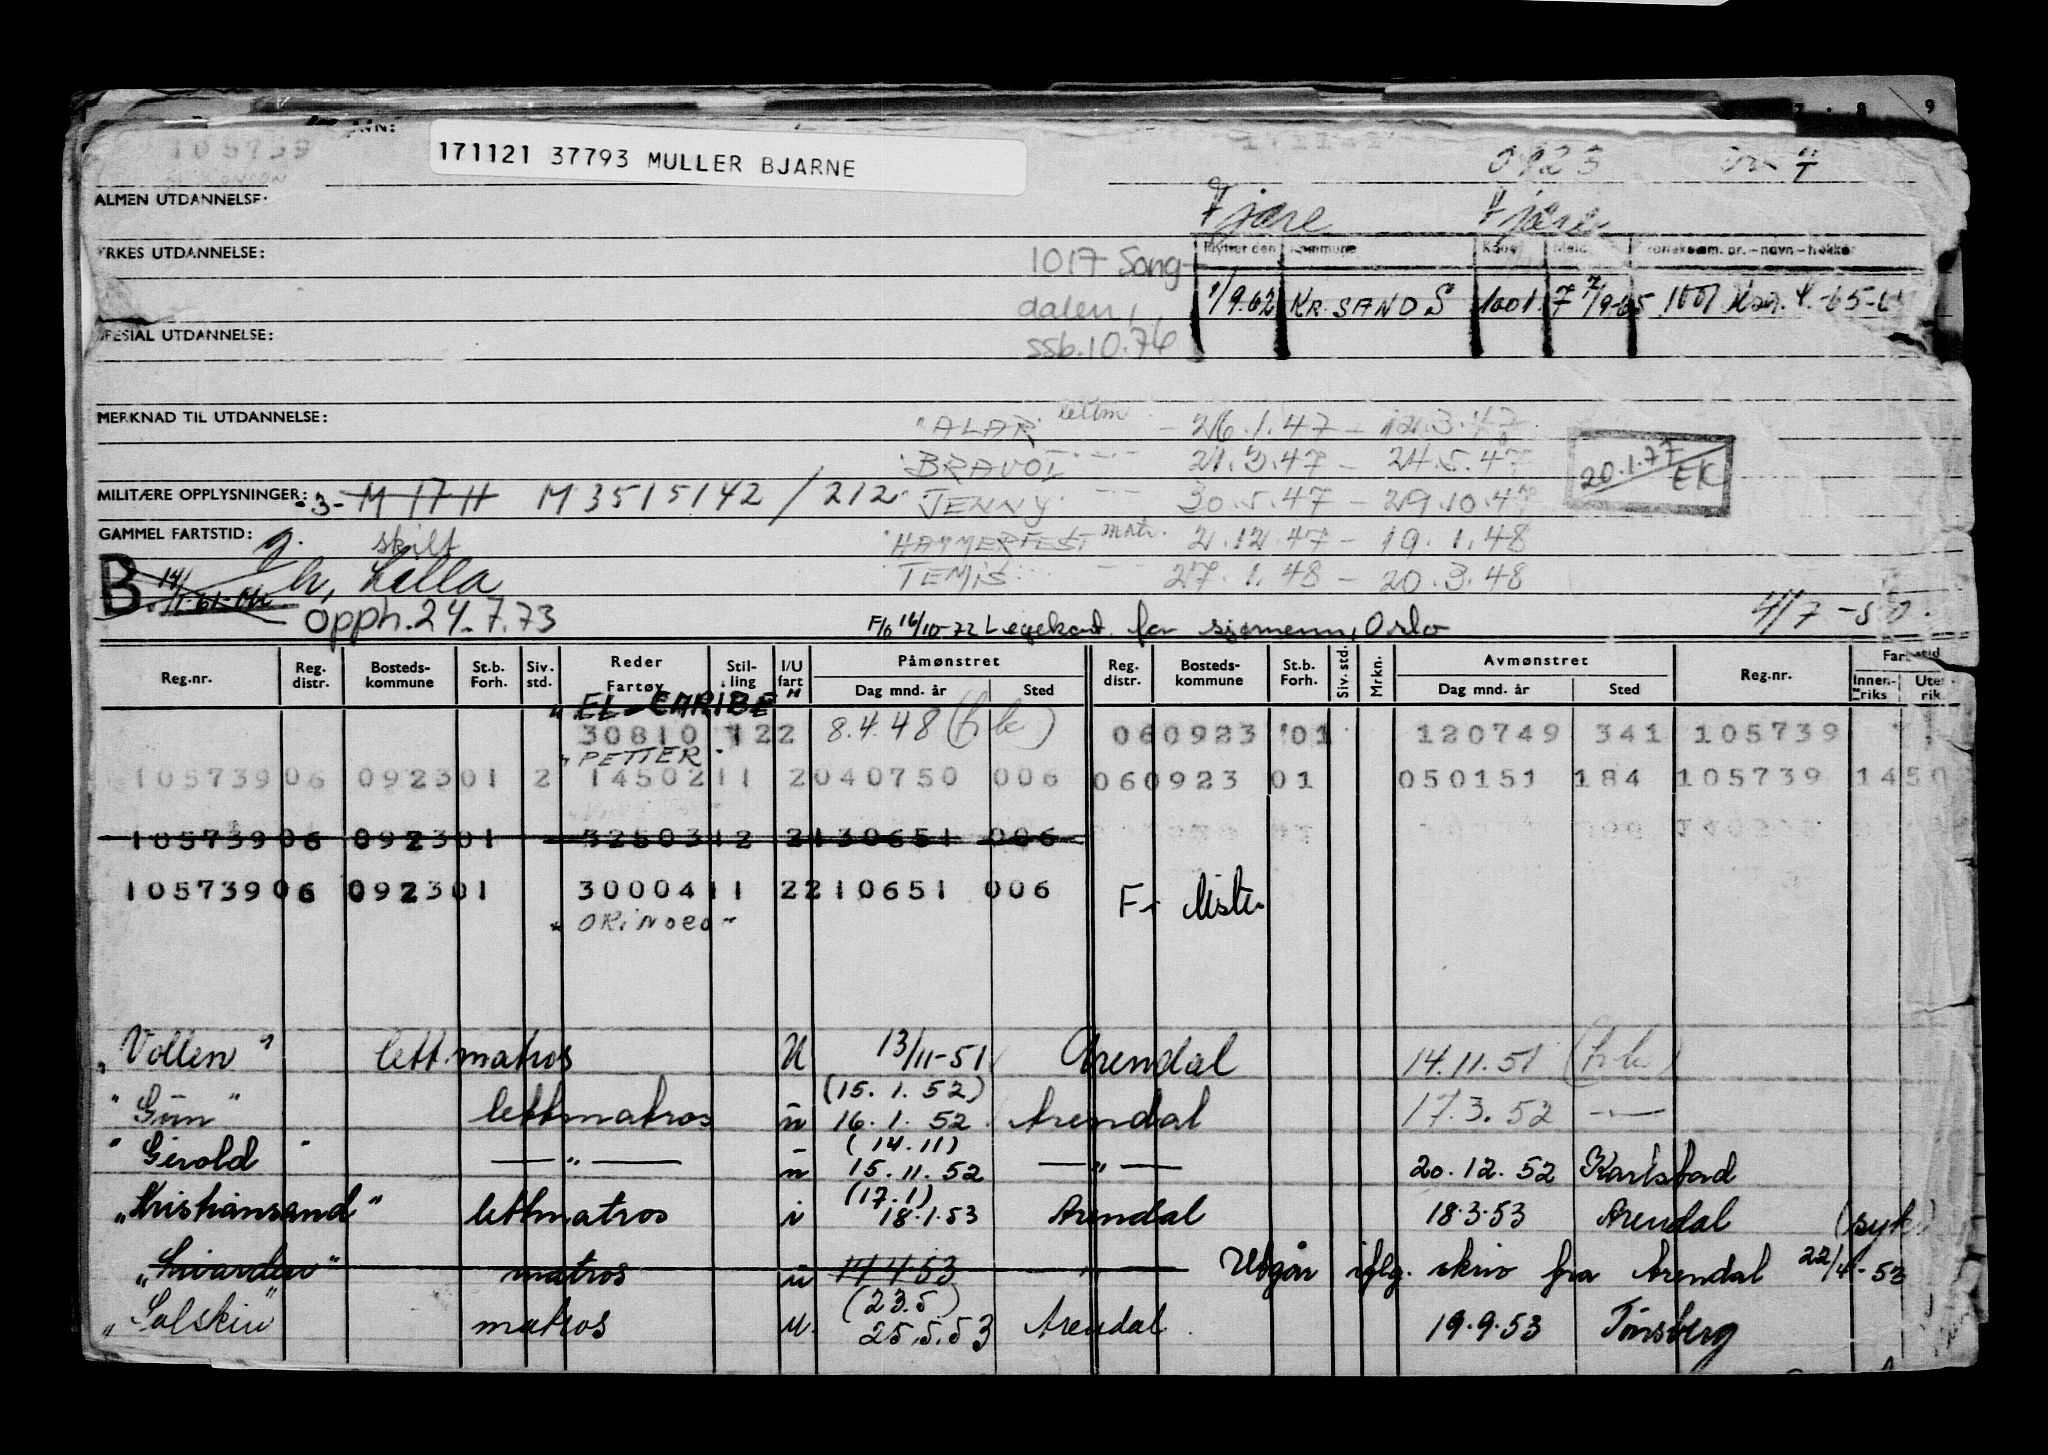 7 8 9
VN:
105739
171121 37793 MULLER BJARNE
0923
ALMEN UTDANNELSE:
Fjære Fjære
YRKES UTDANNELSE:
Flyttet den Kommune Komm. Meld. Konteksem. nr. – navn – hekke
1017 Song-
dalen,
ssb.10.76
1/9.62 KR. SAND S 1001 7 7/9-65 1001
SPESIAL UTDANNELSE:
MERKNAD TIL UTDANNELSE:
"ALAR" lettm. – 26.1.47 – 12.3.47
BRAVO I – " – 21.3.47 – 24.5.47
20.1.77 EK
MILITÆRE OPPLYSNINGER: -3- M 17 H M 3515142 / 212
JENNY 30.5.47 – 29.10.47
GAMMEL FARTSTID: g. skilt
HAMMERFEST matr. 2.12.47 – 19.1.48
B. 14/ h, Lella
TEMIS 27.1.48 – 20.3.48
opph. 24.7.73
F/6 16/10-72 Legekont. for sjømenn, Oslo
4/7 - 50.
Reg.nr. Reg. distr. Bosteds-kommune St.b. Forh. Siv. std. Reder Fartøy Stilling I/U fart Påmønstret Dag mnd. år Sted Reg. distr. Bosteds-kommune St.b. Forh. Siv. std. Mrkn. Avmønstret Dag mnd. år Sted Reg.nr. Fartstid Innenriks Utenrik.
"EL CARIBE"
30810 122 8.4.48 (hk) 060923 01 120749 341 105739
"PETTER"
105739 06 092301 2 14502 11 2 040750 006 060923 01 050151 184 105739 1450
105739 06 092301 32503 12 2 130651 006
105739 06 092301 30004 11 2 210651 006 F. liste
"ORINOCO"
"Vollen" lett.matros U 13/11-51 Arendal 14.11.51 (hk)
(15.1.52)
"Gun" lettmatros u 16.1.52 Arendal 17.3.52 – " –
(14.11)
"Gerold" – " – u 15.11.52 – " – 20.12.52 Karlstad
(17.1)
"Kristiansand" lettmatros i 18.1.53 Arendal 18.3.53 Arendal (syk)
matros u 14.4.53 – " – Utgår iflg. skriv fra Arendal 22/4-53
(23.5)
"Solskin" matros u. 25.5.53 Arendal. 19.9.53 Tønsberg